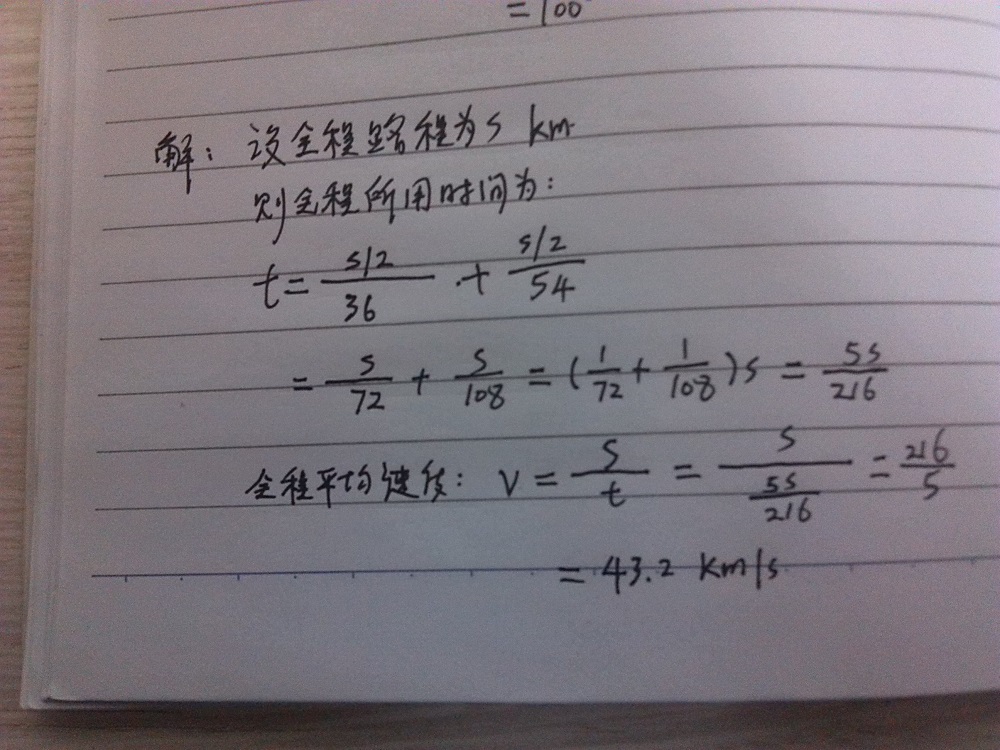 =100
解：设全程路程为s km
则全程所用时间为：
t= s/2 / 36 + s/2 / 54
= s/72 + s/108 = (1/72 + 1/108)s = 5s/216
全程平均速度：v = s/t = s / (5s/216) = 216/5
= 43.2 km/s